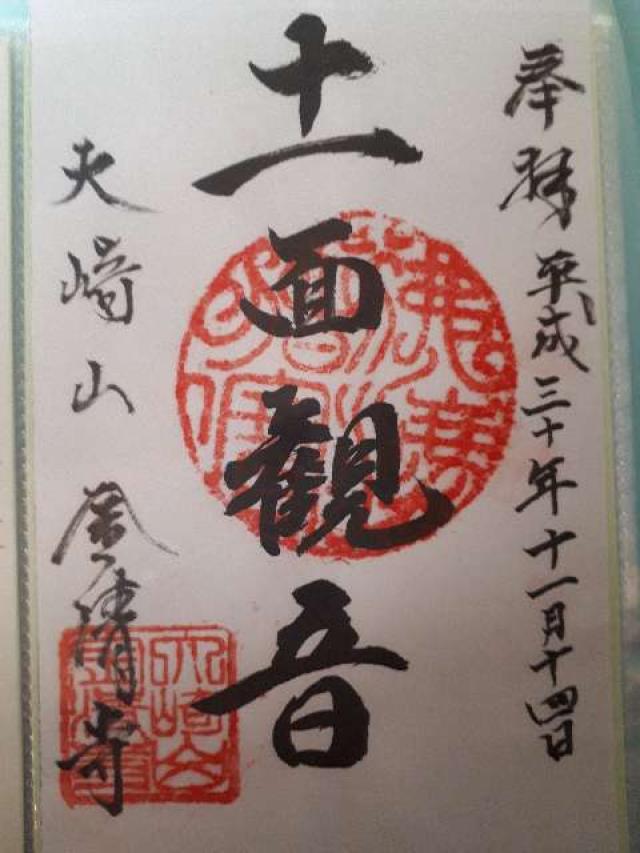 奉拝 平成三十年十一月十四日
十一面観音
天崎山 金清寺